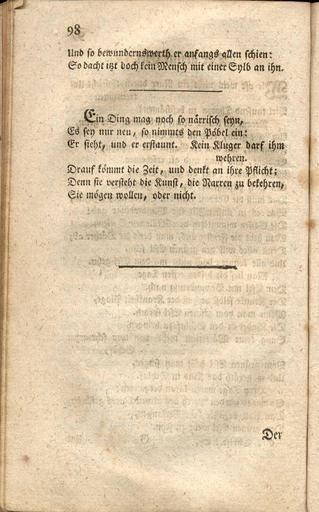 98
Und so bewundernswerth er anfangs allen schien:
So dacht itzt doch kein Mensch mit einer Sylb an ihn.
Ein Ding mag noch so närrisch seyn,
Es sey nur neu, so nimmts den Pöbel ein:
Er sieht, und er erstaunt. Kein Kluger darf ihm
wehren.
Drauf kömmt die Zeit, und denkt an ihre Pflicht;
Denn sie versteht die Kunst, die Narren zu bekehren,
Sie mögen wollen, oder nicht.
Der